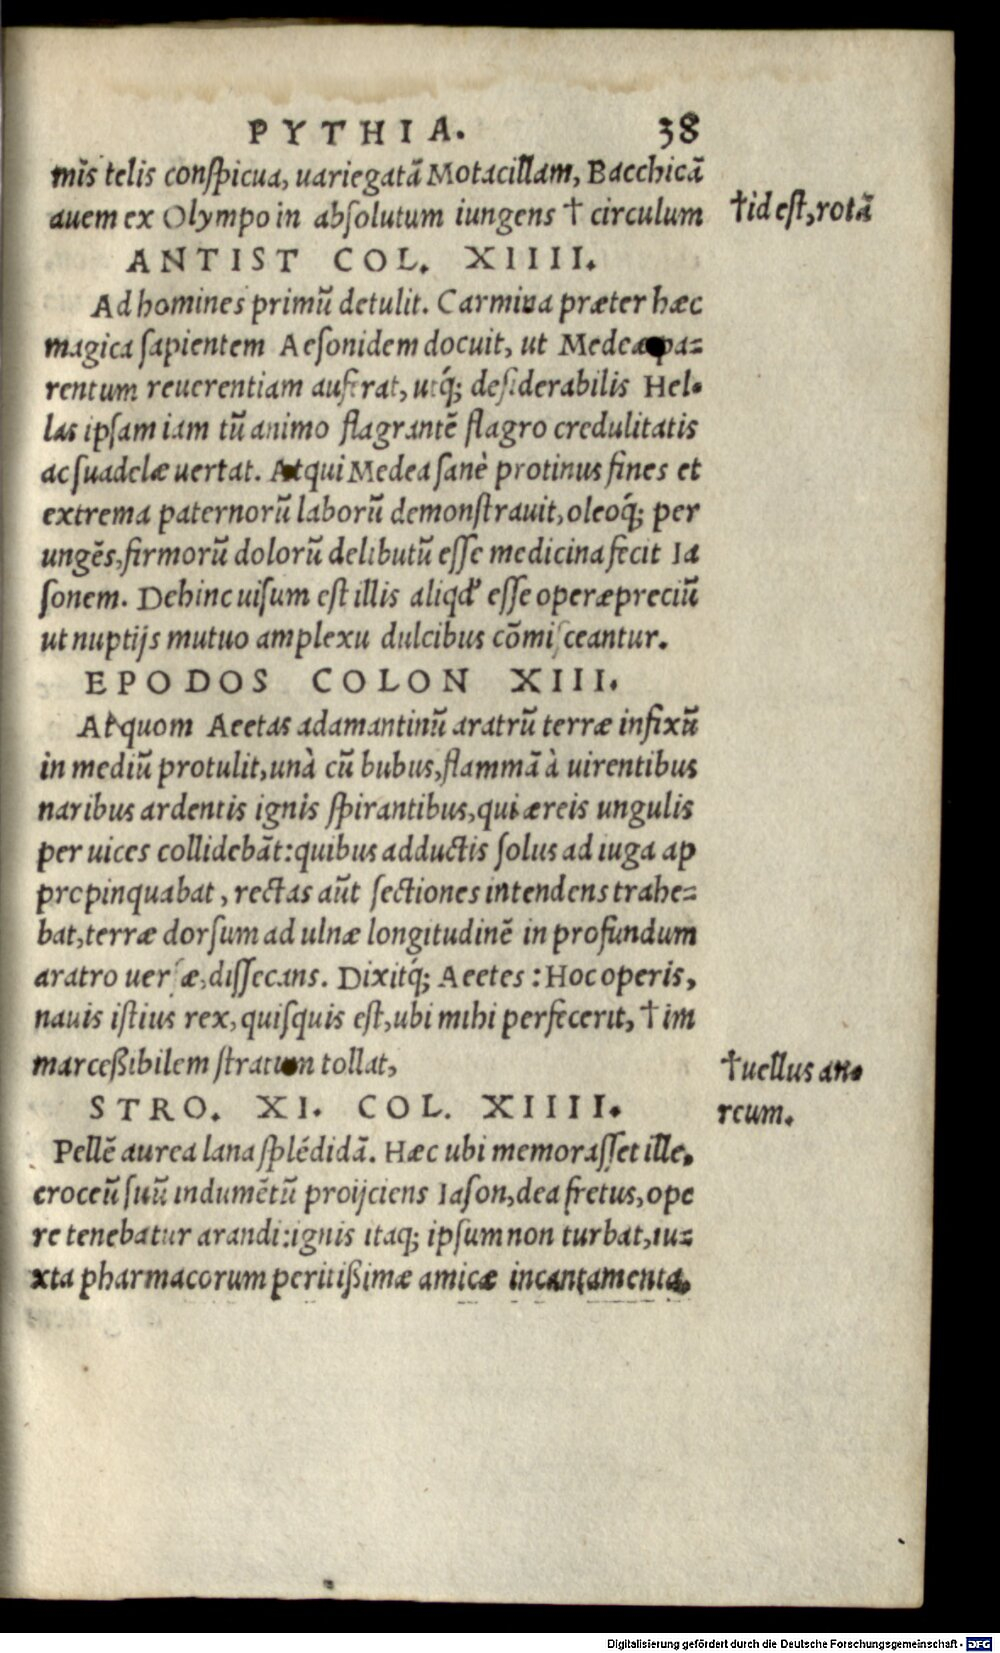 PYTHIA. 38
mis̃ telis conſpicua, uariegatã Motacillam, Bacchicã
auem ex Olympo in abſolutum iungens † circulum
†id eſt, rotã
ANTIST COL. XIIII.
Ad homines primũ detulit. Carmina præter hæc
magica ſapientem Aeſonidem docuit, ut Medeæ pa=
rentum reuerentiam auferat, utq́; deſiderabilis Hel=
las ipſam iam tũ animo flagrantẽ flagro credulitatis
ac ſuadelæ uertat. Atqui Medea ſanè protinus fines et
extrema paternorũ laborũ demonſtrauit, oleoq́; per
ungẽs, firmorũ dolorũ delibutũ eſſe medicina fecit Ia
ſonem. Dehinc uiſum eſt illis aliqd' eſſe operæpreciũ
ut nuptijs mutuo amplexu dulcibus cõmiſceantur.
EPODOS COLON XIII.
At quom Aeetas adamantinũ aratrũ terræ infixũ
in mediũ protulit, unà cũ bubus, flammã à uirentibus
naribus ardentis ignis ſpirantibus, qui æreis ungulis
per uices collidebãt: quibus adductis ſolus ad iuga ap
propinquabat, rectas aũt ſectiones intendens trahe=
bat, terræ dorſum ad ulnæ longitudinẽ in profundum
aratro uerſæ, diſſecans. Dixitq́; Aeetes: Hoc operis,
nauis iſtius rex, quiſquis eſt, ubi mihi perfecerit, † im
marceßibilem ſtratum tollat,
†uellus au=
reum.
STRO. XI. COL. XIIII.
Pellẽ aurea lana ſplẽdidã. Hæc ubi memoraſſet ille,
croceũ ſuũ indumẽtũ proijciens Iaſon, dea fretus, ope
re tenebatur arandi: ignis itaq; ipſum non turbat, iu=
xta pharmacorum peritißimæ amicæ incantamenta.
Digitalisierung gefördert durch die Deutsche Forschungsgemeinschaft - DFG